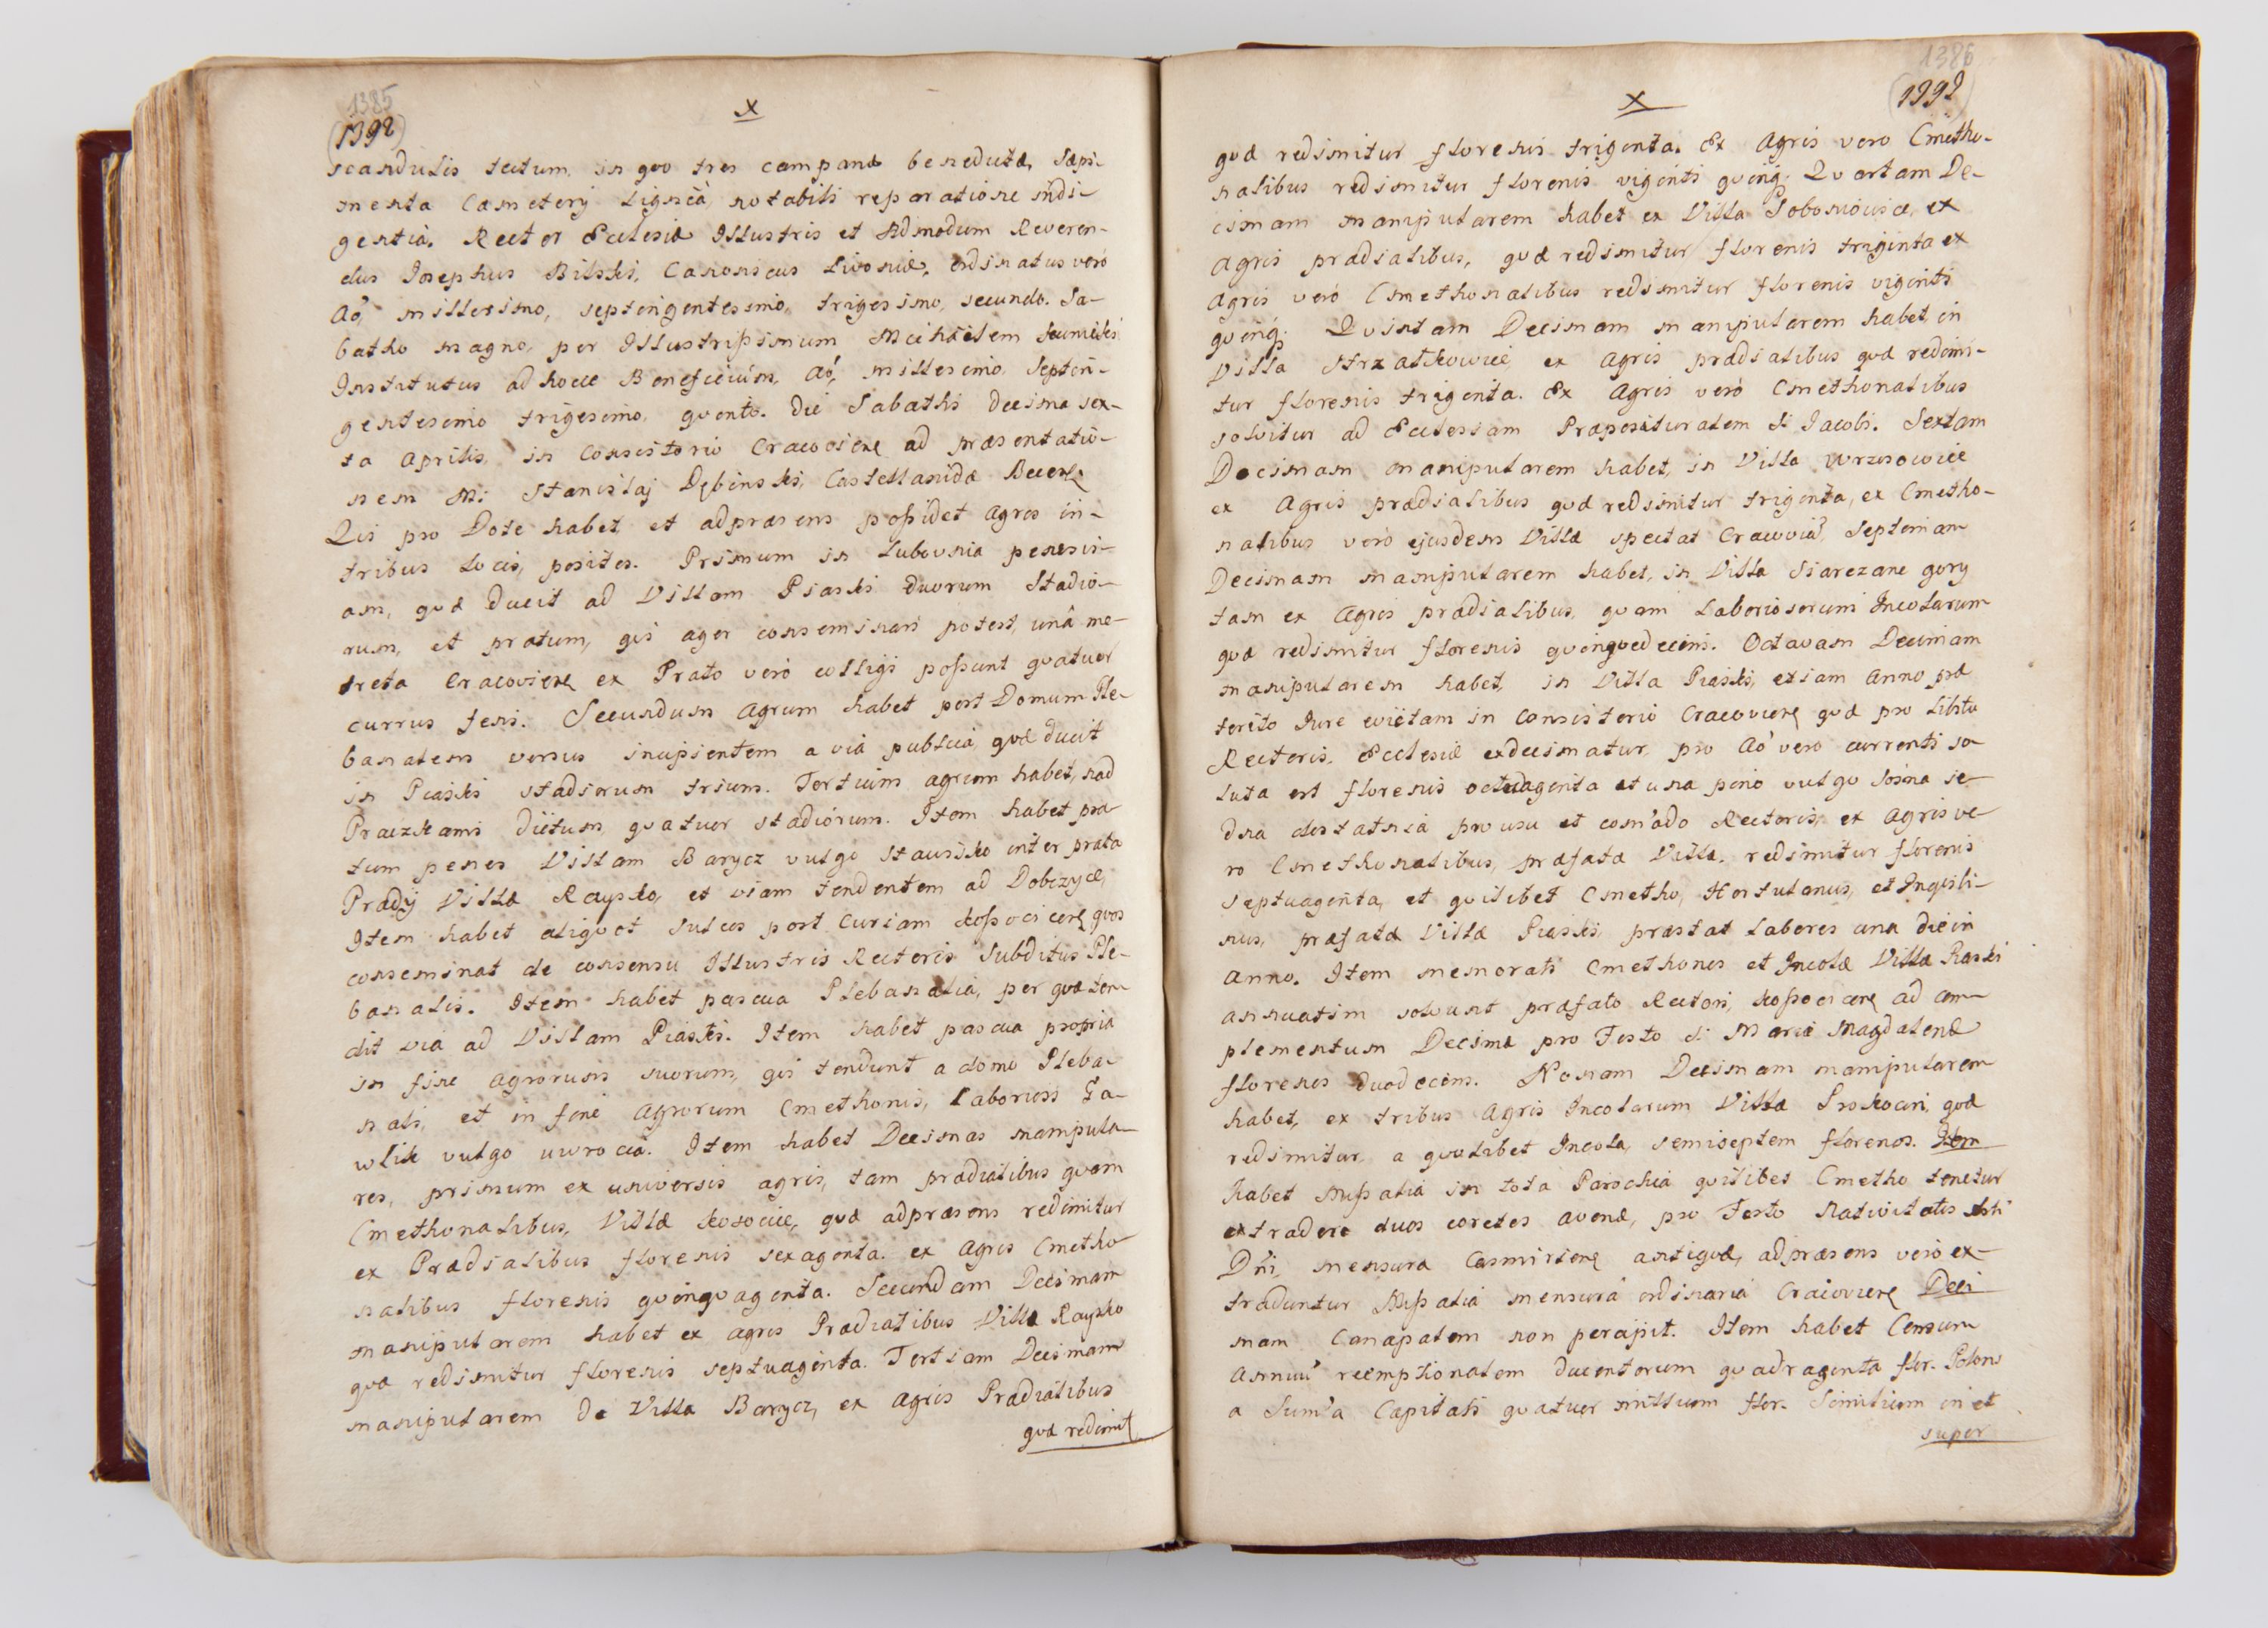 1385
(1392)
x
scandulis tectum, in quo tres campanæ benedictæ, Sæpi-
menta Cæmeterij Lignea, notabili reparatione indi-
gentia. Rector Ecclesiæ Illustris et Admodum Reveren-
dus Josephus Bilski, Canonicus Livoniæ, ordinatus vero
Aō, millesimo, septingentesimo, trigesimo, secundo. Sa-
batho magno, per Illustrissimum Michaelem
Institutus ad hocce Beneficium, Aō, millesimo, Septin-
gentesimo trigesimo, quinto. die Sabathi decima sex-
ta Aprilis, in Consistorio Cracovien ad præsentatio-
nem M: Stanislaj Dębinski, Castellanidæ Biecen
Qui pro Dote habet, et adpræsens possidet agros in-
tribus locis, positos. Primum in Lubovnia penes vi-
am, quæ ducit ad Villam Piaski duorum Stadio-
rum, et pratum, qui ager conseminari potest, unâ me-
treta Cracovien ex Prato vero colligi possunt quatuor
currus feni. Secundum Agrum habet post Domum Ple-
banalem versus incipientem a via publica, quæ ducit
in Piaski stadiorum trium. Tertium agrum habet, nad
Praczkami dictum, quatuor stadiorum. Item habet pra-
tum penes Villam Barycz vulgo Stawisko inter prata
Prædij Villæ Raysko, et viam tendentem ad Dobczyce,
Item habet aliquot sulcos post Curiam Kossocicen quos
conseminat de consensu Illustris Rectoris Subditus Ple-
banalis. Item habet pascua Plebanalia, per quæ ten-
dit via ad Villam Piaski. Item habet pascua propria
in fine Agrorum suorum, qui tendunt a domo Pleba-
nali, et in fine Agrorum Cmethonis, Laboriosi Ga-
wlik vulgo uwrocia. Item habet Decimas manipula-
res, primum ex universis agris, tam prædialibus quam
Cmethonalibus, Villæ Kosocice, quæ adpræsens redimitur
ex Prædialibus florenis sexaginta. ex Agris Cmetho-
nalibus florenis quinquaginta. Secundam Decimam
manipularem habet ex agris Prædialibus Villæ Raysko
quæ redimitur florenis septuaginta. Tertiam Decimam
manipularem de Villa Barycz, ex Agris Prædialibus
quæ redimit
1386
(1393)
x
quæ redimitur florenis triginta. Ex Agris vero Cmetho-
nalibus redimitur florenis viginti quinq. Quartam De-
cimam manipularem habet ex Villa Soboniovice, ex
Agris prædialibus, quæ redimitur florenis triginta ex
Agris vero Cmethonalibus redimitur florenis viginti
quinq. Quintam Decimam manipularem habet, in
Villa Strzałkowice, ex Agris prædialibus quæ redimi-
tur florenis triginta. Ex Agris vero Cmethonalibus
solvitur ad Ecclesiam Præposituralem S: Jacobi. Sextam
Decimam manipularem habet, in Villa Wrzosowice
ex Agris prædialibus quæ redimitur triginta, ex Cmetho-
nalibus vero ejusdem Villæ spectat Cracoviæ, Septimam
Decimam manipularem habet, in Villa Siarczane gory
tam ex Agris prædialibus, quam Laboriosorum Incolarum
quæ redimitur florenis quinquedecim. Octavam Decimam
manipularem habet, in Villa Piaski, etiam Anno præ
terito Jure evictam in Consistorio Cracovien quæ pro libitu
Rectoris, Ecclesiæ exdecimatur, pro Aō vero currenti so-
luta est florenis octuaginta et una pino vulgo sosna se-
dna dostatnia pro usu et comodo Rectoris, ex Agris ve-
ro Cmethonalibus, præfatæ Villæ, redimitur florenis
septuaginta, et quilibet Cmetho, Hortulanus, et Inquili-
nus, præfatæ Villæ Piaski, præstat Labores una die in
Anno. Item memorati Cmethones et Incolæ Villæ Piaski
annuatim solvunt præfato Rectori, Kossocicen ad com-
plementum Decimæ pro Festo S: Mariæ Magdalenæ
florenos duodecim. Nonam Decimam manipularem
habet, ex tribus Agris Incolarum Villæ Prokocim, quæ
redimitur, a quolibet Incola, semiseptem florenos. Item
habet Missalia in tota Parochia quilibet Cmetho tenetur
extradere duos coretos avenæ, pro Festo Nativitatis Xsti
Dn̄i, mensura Casimirien antiqua, adpræsens vero ex-
traduntur Missalia mensura ordinaria Cracovien Deci
mam Canapalem non percipit. Item habet Censum
Annuū reemptionalem ducentorum quadraginta flor. Polon
a Sum̄a Capitali quatuor millium flor. Similium in et
super